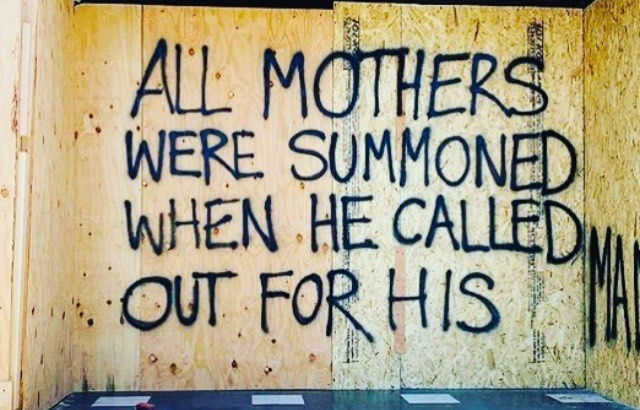 ALL MOTHERS
WERE SUMMONED
WHEN HE CALLED
OUT FOR HIS